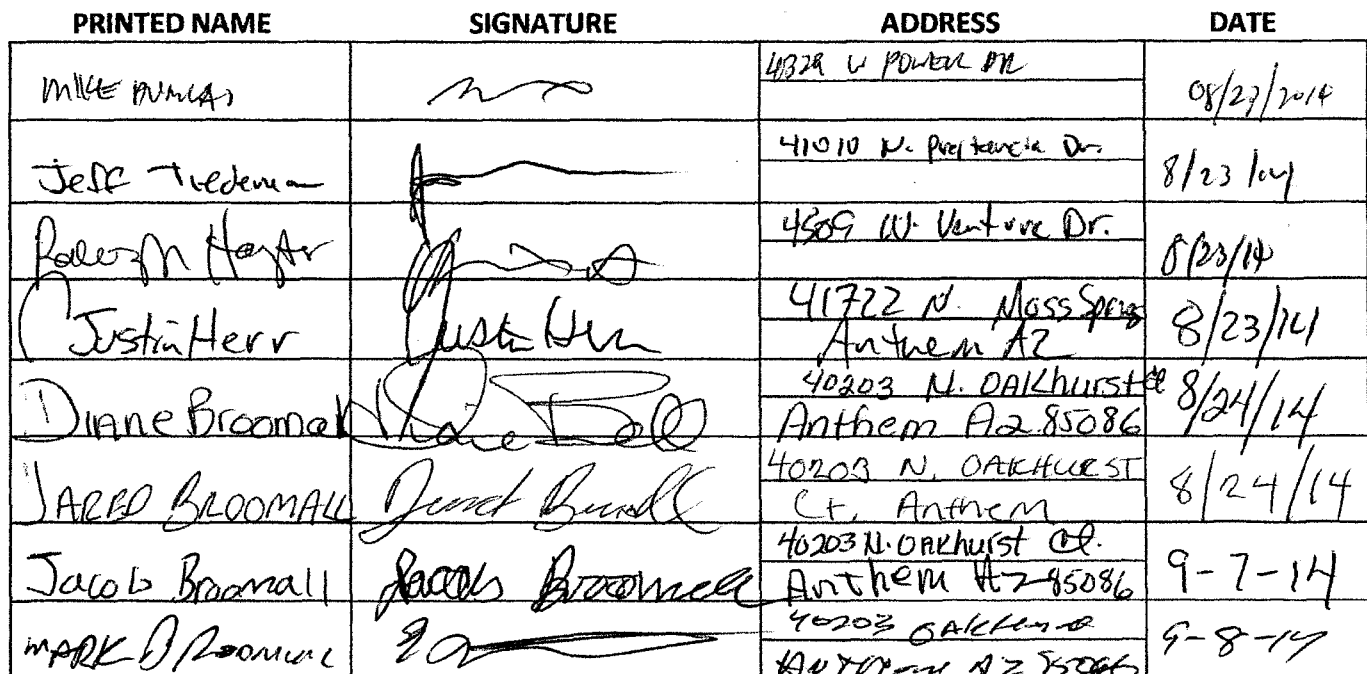 PRINTED NAME SIGNATURE ADDRESS DATE
MIKE 4329 W POWER DR 08/23/2014
Jeff Tiedeman 41010 N. Dr. 8/23/14
Hayter 4509 W. Venture Dr. 8/23/14
Justin Herr Justin Herr 41722 N. Moss Springs
Anthem AZ 8/23/14
Dianne Broomall 40203 N. OAKhurst Ct
Anthem Az 85086 8/24/14
JARED BROOMALL 40203 N. OAKHURST
Ct. Anthem 8/24/14
Jacob Broomall Jacob Broomall 40203 N. OAKhurst Ct.
Anthem AZ 85086 9-7-14
MARK BROOMALL 40203
Anthem AZ 85086 9-8-14